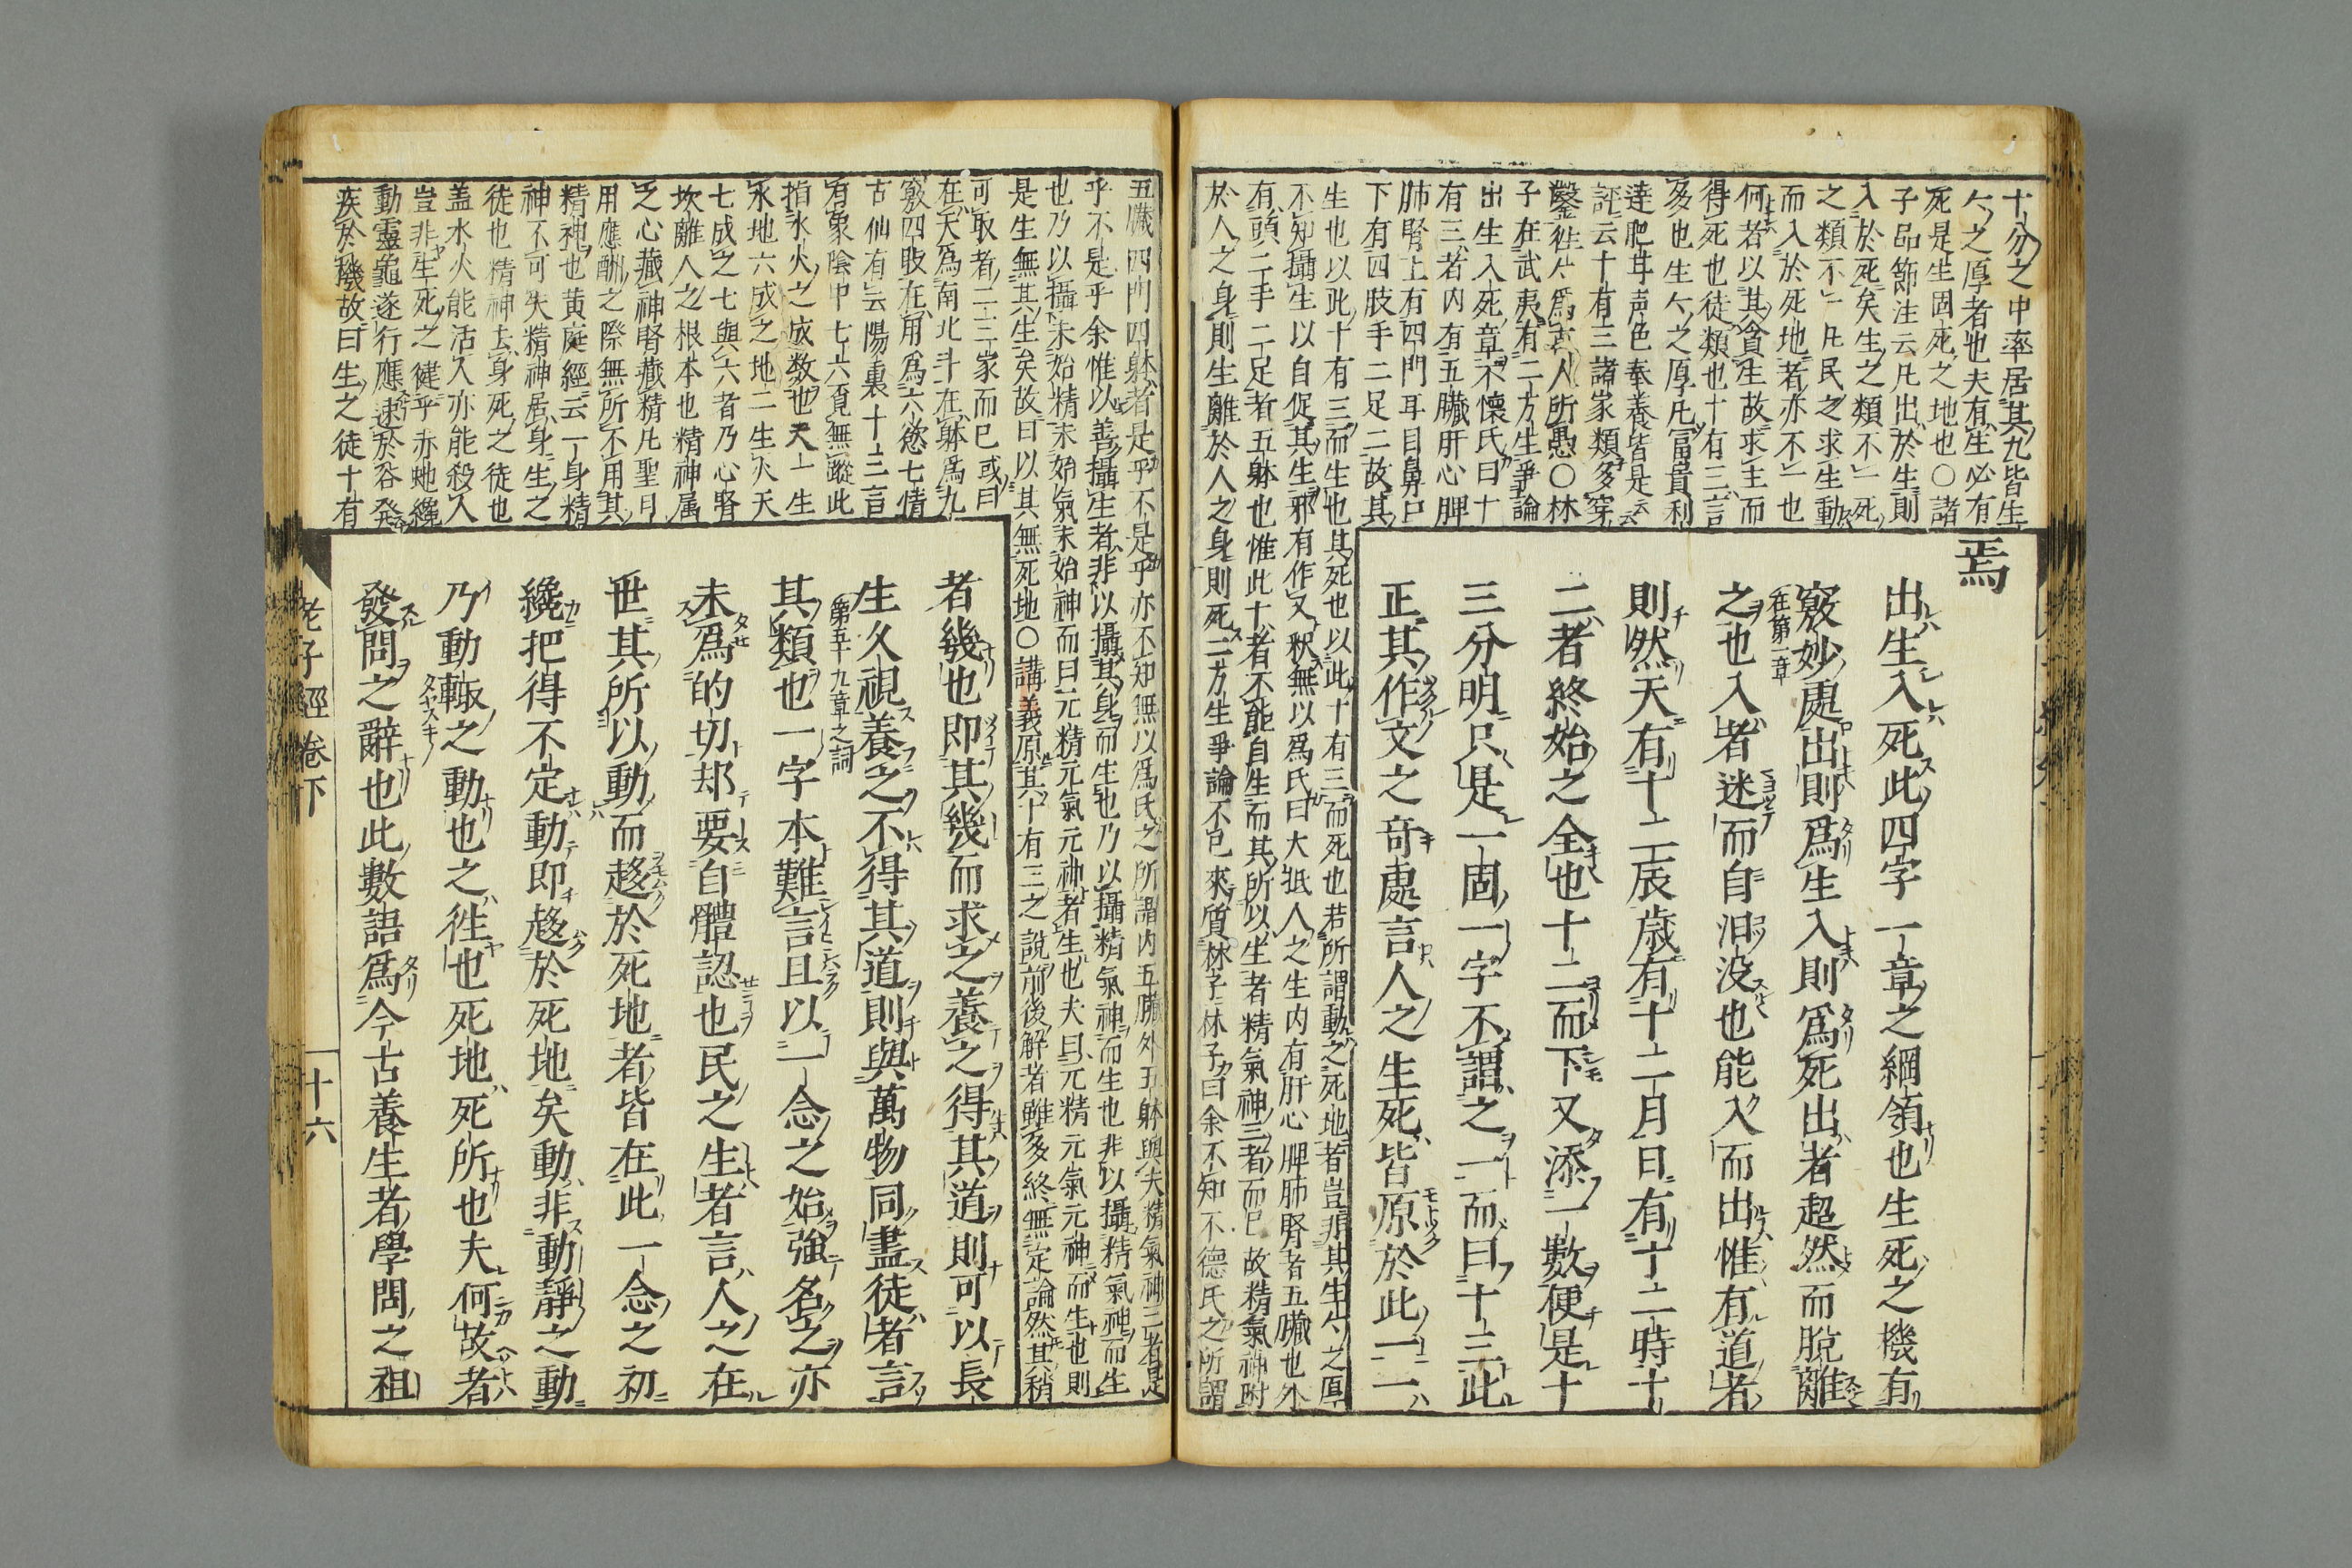 焉
出生入死此四字一章之綱領也生死之機有
竅妙處出則爲生入則爲死出者超然而脫離
在第一章
之也入者迷而自汨没也能入而出惟有道者
則然天有十二辰歳有十二月日有十二時十
二者終始之全也十二而下又添一數便是十
三分明只是一固一字不謂之一而曰十三此
正其作文之竒處言人之生死皆原於此一二
十分之中率居其九皆生
生之厚者也夫有生必有
死是生固死之地也○諸
子品節注云凡出於生則
入於死矣生之類不一死
之類不一凡民之求生動
而入於死地者亦不一也
何者以其貪生故求主而
得死也徒類也十有三言
多也生生之厚凡冨貴利
達肥甘声色奉養皆是云云
評云十有三諸家類多穿
鑿徃徃爲髙人所愚○林
子在武夷有二方生爭論
出生入死章不懷氏曰十
有三者内有五臓肝心脾
肺腎上有四門耳目鼻口
下有四肢手二足二故其
生也以此十有三而生也其死也以此十有三而死也若所謂動之死地者豈非其生生之厚
不知攝生以自促其生邪有作又釈無以爲氏曰大抵人之生内有肝心脾肺腎者五臓也外
有頭二手二足者五躰也惟此十者不能自生而其所以生者精氣神三者而巳故精氣神附
於人之身則生離於人之身則死二方生爭論不已來質林子林子曰余不知不德氏之所謂
五臓四門四躰者是乎不是乎亦不知無以爲氏之所謂内五臓外五躰與夫精氣神三者是
乎不是乎余惟以善攝生者非以攝其身而生也乃以攝精氣神而生也非以攝精氣神而生
也乃以攝未始精未始氣未始神而曰元精元氣元神者生也夫曰元精元氣元神而生也則
是生無其生矣故曰以其無死地○講義原其十有三之說前後解者雖多終無定論然其稍
可取者二三家而巳或曰
在天爲南北斗在躰爲九
竅四肢在用爲六慾七情
古仙有云陽裏十三言
有象陰中七六覔無蹤此
指水火之成数也天一生
水地六成之地二生火天
七成之七與六者乃心腎
坎離人之根本也精神属
之心藏神腎藏精凡聖日
用應酬之際無所不用其
精神也黄庭經云一身精
神不可失精神居身生之
徒也精神去身死之徒也
盖水火能活人亦能殺人
豈非生死之徤乎赤虵纔
動靈龜遂行應速於谷發
疾於機故曰生之徒十有
者幾也即其幾而求之養之得其道則可以長
生久視養之不得其道則與萬物同盡徒者言
第五十九章之詞
其類也一字本難言且以一念之始強名之亦
未爲的切却要自體認也民之生者言人之在
世其所以動而趍於死地者皆在此一念之初
纔把得不定動即趍於死地矣動非動靜之動
乃動輙之動也之徃也死地死所也夫何故者
發問之辭也此數語爲今古養生者學問之祖
老子經卷下
十六